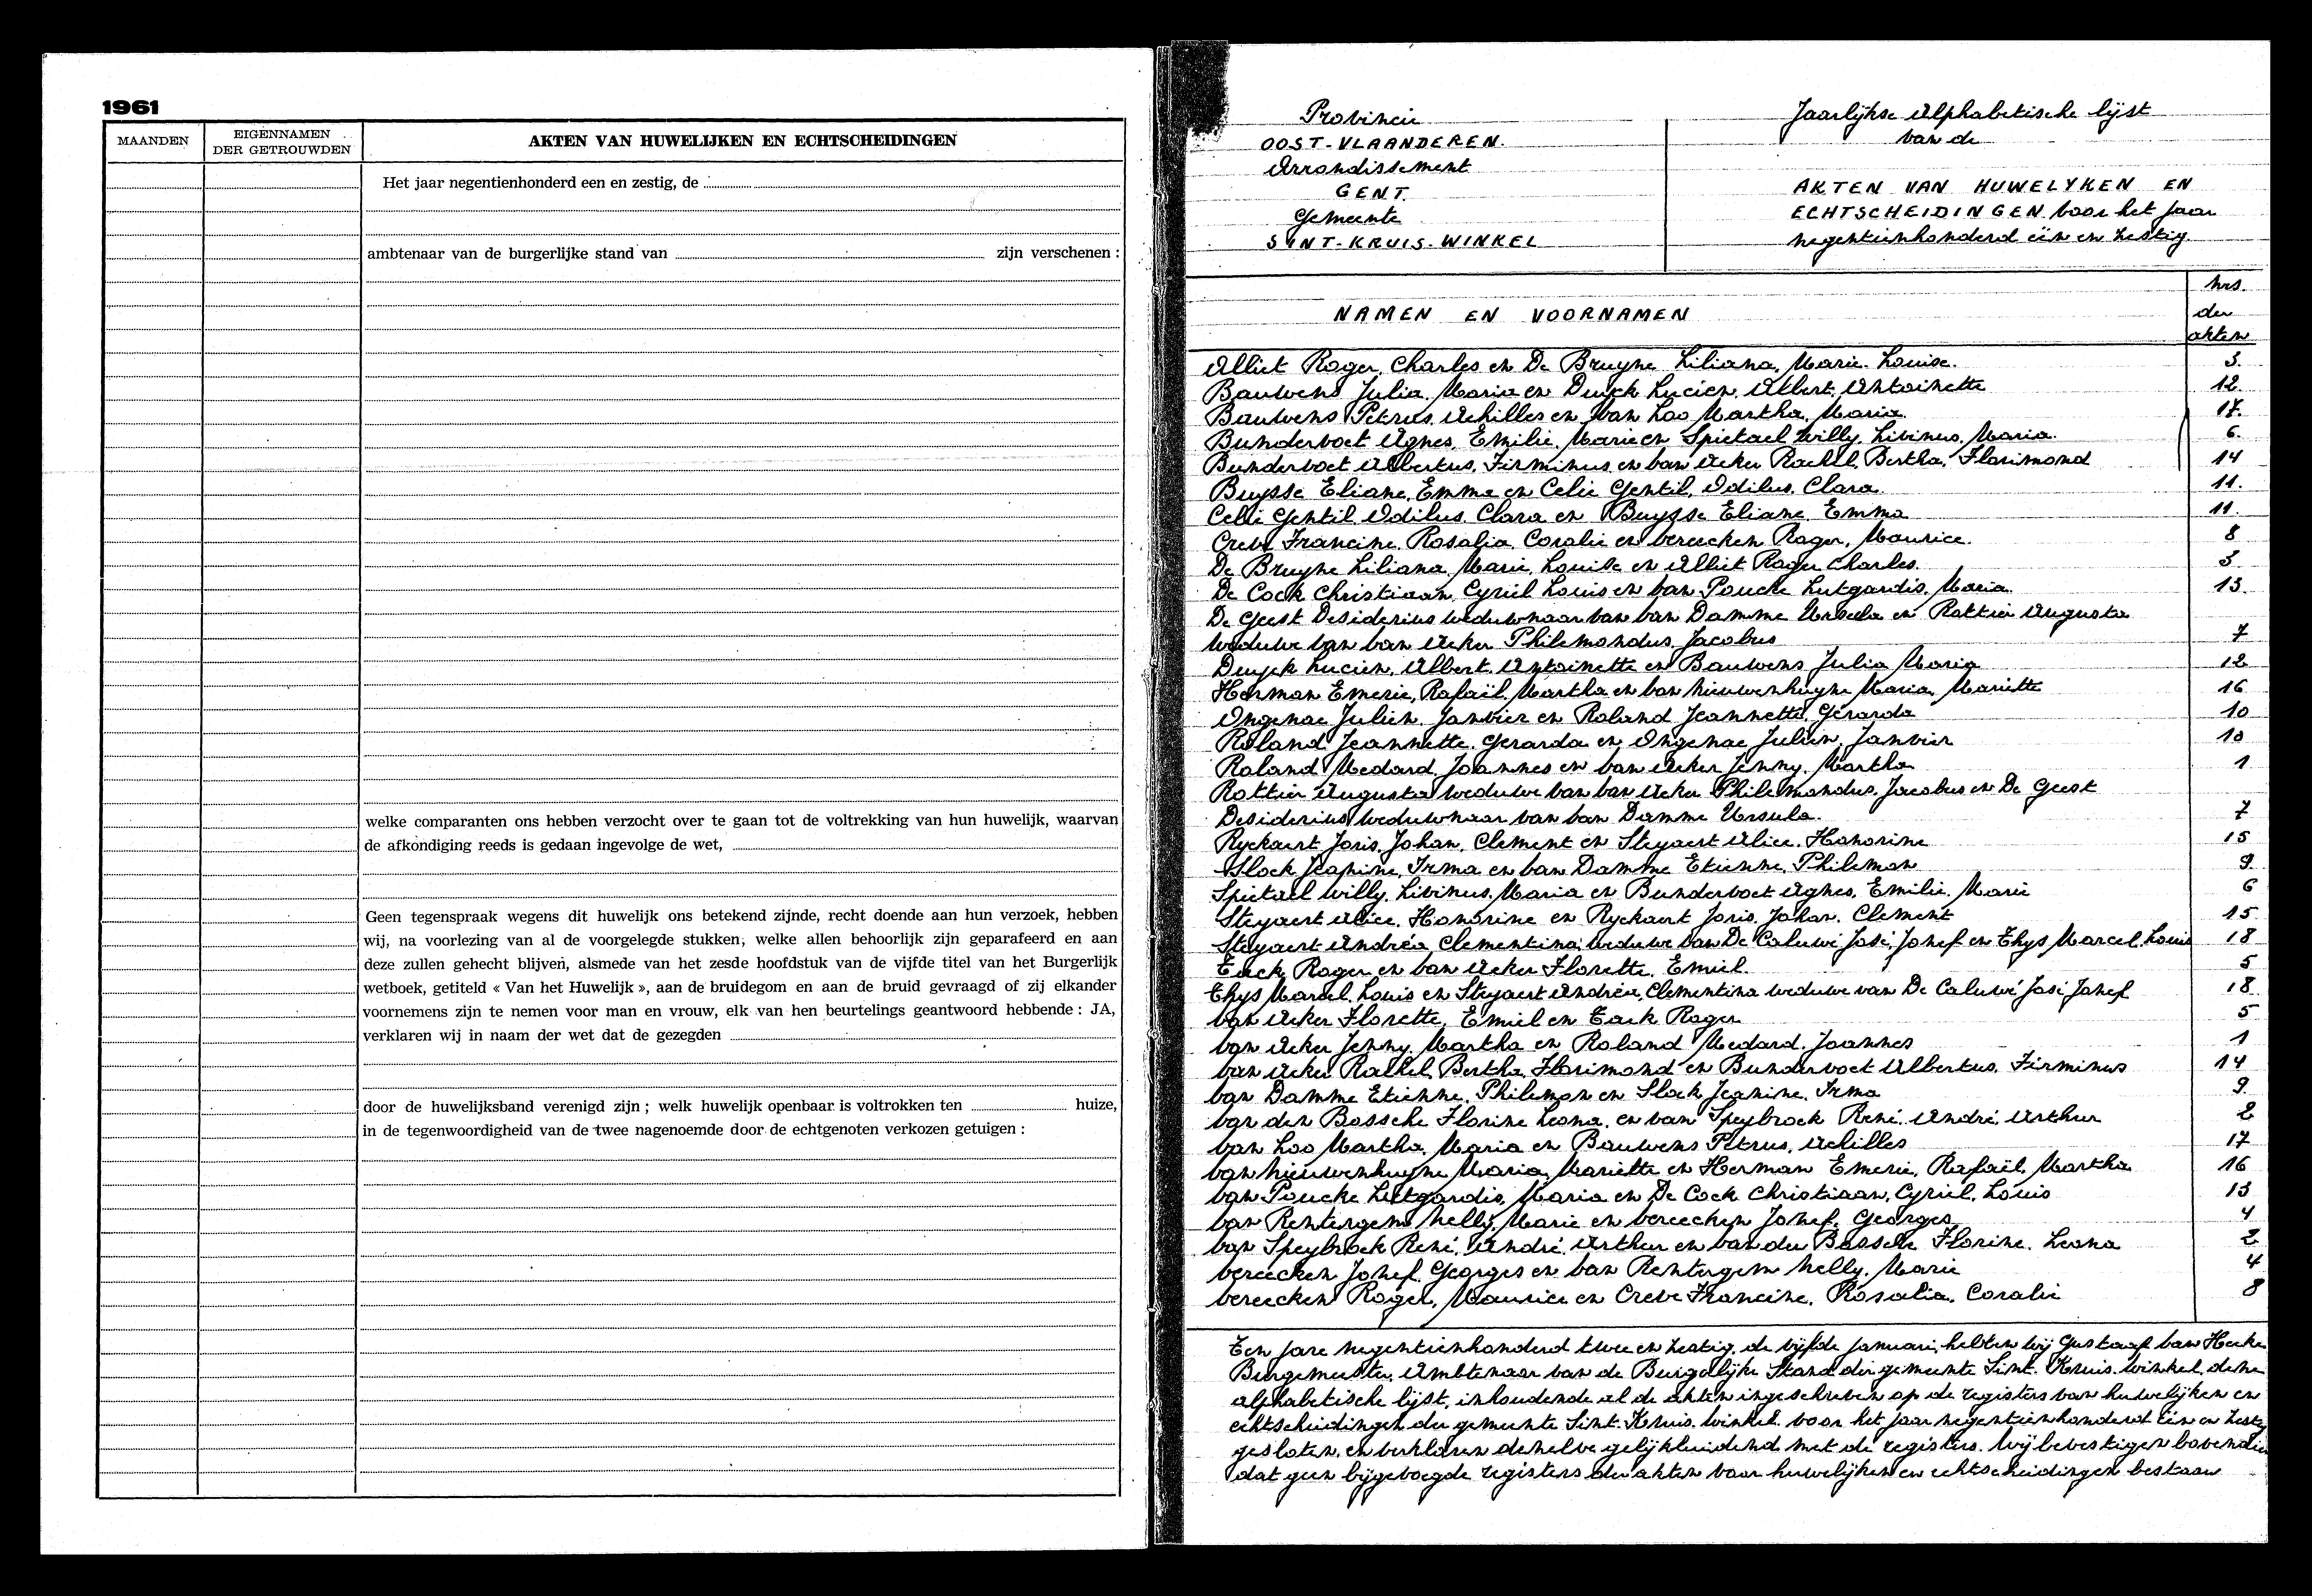 1961
MAANDEN
EIGENNAMEN
DER GETROUWDEN
AKTEN VAN HUWELIJKEN EN ECHTSCHEIDINGEN
Het jaar negentienhonderd een en zestig, de
ambtenaar van de burgerlijke stand van zijn verschenen :
welke comparanten ons hebben verzocht over te gaan tot de voltrekking van hun huwelijk, waarvan
de afkondiging reeds is gedaan ingevolge de wet,
Geen tegenspraak wegens dit huwelijk ons betekend zijnde, recht doende aan hun verzoek, hebben
wij, na voorlezing van al de voorgelegde stukken, welke allen behoorlijk zijn geparafeerd en aan
deze zullen gehecht blijven, alsmede van het zesde hoofdstuk van de vijfde titel van het Burgerlijk
wetboek, getiteld « Van het Huwelijk », aan de bruidegom en aan de bruid gevraagd of zij elkander
voornemens zijn te nemen voor man en vrouw, elk van hen beurtelings geantwoord hebbende : JA,
verklaren wij in naam der wet dat de gezegden
door de huwelijksband verenigd zijn ; welk huwelijk openbaar is voltrokken ten huize,
in de tegenwoordigheid van de twee nagenoemde door de echtgenoten verkozen getuigen :
Provincie
OOST-VLAANDEREN.
Arrondissement
GENT.
Gemeente
SINT-KRUIS-WINKEL
Jaarlijkse Alphabetische lijst
van de
AKTEN VAN HUWELYKEN EN
ECHTSCHEIDINGEN voor het jaar
negentienhonderd één en zestig.
NAMEN EN VOORNAMEN
nrs.
der
akten
Alliet Roger, Charles en De Bruyne Liliana, Marie. Louise. 3.
Bauwens Julia. Maria en Duyck Lucien, Albert, Antoinette 12.
Bauwens Petrus, Achilles en Van Loo Martha, Maria. 17.
Bundervoet Agnes, Emilie, Marie en Spietael Willy, Livinus, Maria. 6.
Bundervoet Albertus, Firminus en Van Acker Rachel, Bertha, Florimond 14
Buysse Eliane, Emma en Celie Gentil, Odilus, Clara. 11.
Celie Gentil, Odilus, Clara en Buysse Eliane, Emma 11.
Creve Francine, Rosalia, Coralie en Vereecken Roger, Maurice. 8
De Bruyne Liliana, Marie, Louise en Alliet Roger Charles. 3
De Cock Christiaan, Cyriel Louis en Van Poucke Lutgardis, Maria. 13.
De Geest Desiderius weduwnaar van Van Damme Ursula en Rottier Augusta
weduwe van Van Acker Philemondus, Jacobus 7
Duyck Lucien, Albert, Antoinette en Bauwens Julia Maria 12
Herman Emerie, Rafaël, Martha en Van Nieuwenhuyse Maria, Mariette 16
Ongenae Julien, Janvier en Roland Jeannette, Gerarda 10
Roland Jeannette, Gerarda en Ongenae Julien, Janvier 10
Roland Medard, Joannes en Van Acker Jenny, Martha 1
Rottier Augusta weduwe van Van Acker Philemondus, Jacobus en De Geest
Desiderius weduwnaar van Van Damme Ursula. 7
Ryckaert Joris, Johan, Clement en Steyaert Alice, Honorine 15
Slock Jeanine, Irma en Van Damme Etienne, Philemon 9.
Spietael Willy, Livinus, Maria en Bundervoet Agnes, Emilie, Marie 6
Steyaert Alice, Honorine en Ryckaert Joris, Johan, Clement 15
Steyaert Andréa, Clementina weduwe van De Caluwé José, Jozef en Thys Marcel, Louis 18
Tack Roger en Van Acker Florette, Emiel. 5
Thys Marcel, Louis en Steyaert Andréa, Clementina weduwe van De Caluwé José Jozef 18
Van Acker Florette, Emiel en Tack Roger 5
Van Acker Jenny, Martha en Roland Medard, Joannes 1
Van Acker Rachel, Bertha, Florimond en Bundervoet Albertus, Firminus 14
Van Damme Etienne, Philemon en Slock Jeanine, Irma 9.
Van den Bossche Florine Leona, en Van Speybroek René, André, Arthur 2
Van Loo Martha, Maria en Bauwens Petrus, Achilles 17
Van Nieuwenhuyse Maria, Mariette en Herman Emerie, Rafaël, Martha 16
Van Poucke Lutgardis, Maria en De Cock Christiaan, Cyriel, Louis 13
Van Rentergem Nelly, Marie en Vereecken Jozef, Georges 4
Van Speybroek René, André, Arthur en Van den Bossche Florine, Leona 2
Vereecken Jozef, Georges en Van Rentergem Nelly, Marie 4
Vereecken Roger, Maurice en Creve Francine, Rosalia, Coralie 8
Ten jare negentienhonderd twee en zestig, de vijfde januari, hebben wij Gustaaf Van Hecke
Burgemeester, Ambtenaar van de Burgelijke Stand der gemeente Sint-Kruis-Winkel, deze
alphabetische lijst, inhoudende al de akten ingeschreven op de registers van huwelijken en
echtscheidingen der gemeente Sint-Kruis-Winkel voor het jaar negentienhonderd één en zestig
gesloten, en verklaren dezelve gelijkluidend met de registers. Wij bevestigen bovendien
dat geen bijgevoegde registers der akten voor huwelijken en echtscheidingen bestaan